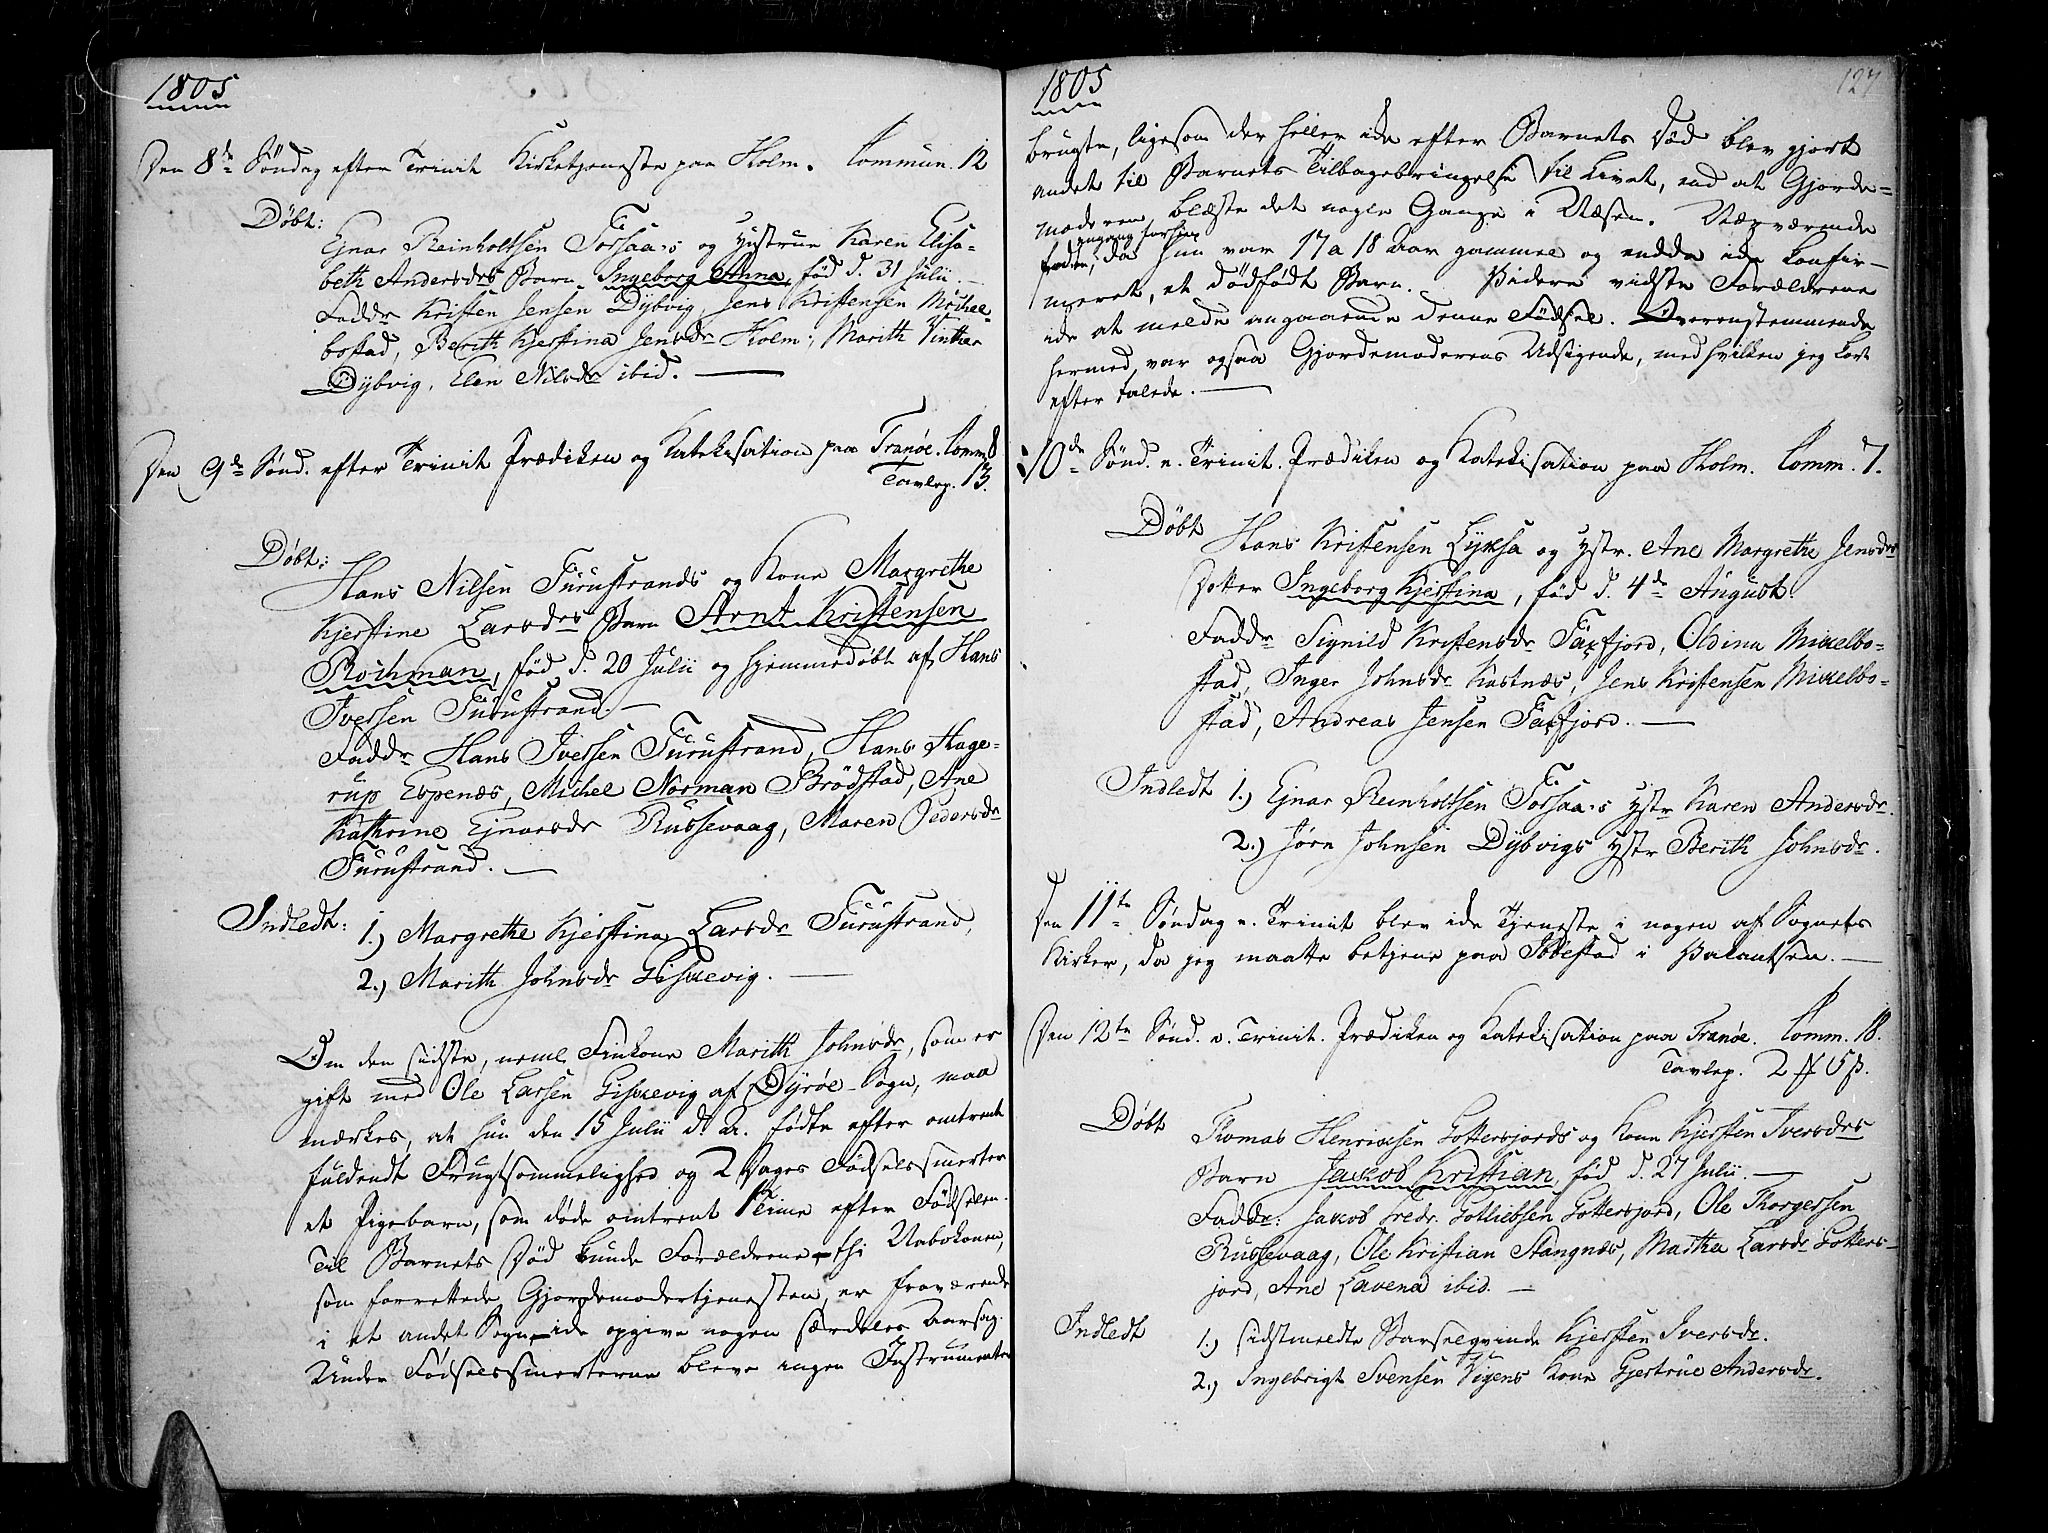 1805
Den 8de Søndag efter Trinit Kirketjeneste paa Holm. Commun. 12
Døbt:
Ejnar Reinholtsen Forsaa:s og Hustrue Karen Elisa-
beth Andersdrs Barn Ingeborg Anna, fød d. 31 Julii.
Faddr Kristen Jensen Dÿbvig, Jens Kristensen Mickel-
bostad, Berith Kjerstina Jensdr Holm, Marith Vinther
Dÿbvig, Elen Nilsdr ibid.
Den 9de Sønd. efter Trinit Prædiken og Katekisation paa Tranöe. Comm. 8
Tavlep. 13.
Døbt:
Hans Nilsen Furustrands og Kone Margrethe
Kjerstine Larsdrs Barn Arnt Kristensen
Rochman, fød d. 20 Julii og hjemmedøbt af Hans
Iversen Furustrand.
Faddr Hans Iversen Furustrand, Hans Hage-
rup Espenæs, Michel Norman Brödstad, Ane
Kathrine Ejnarsdr Russevaag, Maren Pedersdr
Furustrand.
Indledt: 1.) Margrethe Kjerstina Larsdr Furustrand,
2.) Marith Johnsdr Giskevig.
Om den sidste, neml. Finkone Marith Johnsdr, som er
gift med Ole Larsen Giskevig af Dÿröe-Sogn, maa
mærkes, at hun den 15 Julii d. A. fødte efter omtrent
fuldendt Frugtsommelighed og 2 Dages Fødselssmerter
et Pigebarn, som døde omtrent 1 Time efter Fødselen.
Til Barnets Død kunde Forældrene - thi Nabokonen,
som forrettede Gjordemodertjenesten, er fraværende
i et andet Sogn - ide opgive nogen særdeles Aarsag.
Under Fødselssmerterne bleve ingen Instrumenter
1805
127
brugte, ligesom der heller ide efter Barnets Død blev gjort
andet til Barnets Tilbagebringelse til Livet, end at Gjorde-
moderen blæste det nogle Gange i Næsen. Nærværende
engang forhen
da hun var 17 a 18 Aar gammel og endda ide konfir-
meret, et dødfødt Barn. Videre vidste Forældrene
ide at melde angaaende denne Fødsel. Overenstemmende
hermed, var ogsaa Gjordemoderens Udsigende, med hvilken jeg kort
efter talede.
10de Sønd. e. Trinit. Prædiken og Katekisation paa Holm. Comm. 7.
Døbt
Hans Kristensen Lÿksa og Hstr. Ane Margrethe Jensdrs
Dotter Ingeborg Kjerstina, fød d. 4de August.
Faddr Signild Kristensdr Faxfjord, Oldina Mikelbo-
stad, Inger Johnsdr Kastnæs, Jens Kristensen Mikelbo-
stad, Andreas Jensen Faxfjord.
Indledt 1.) Ejnar Reinholtsen Forsaa:s Hstr Karen Andersdr.
2.) Jørn Johnsen Dÿbvigs Hstr Berith Johnsdr.
Den 11te Søndag e. Trinit blev ide Tjeneste i nogen af Sognets
Kirker, da jeg maatte betjene paa Ibbestad i
Den 12te Sønd. e. Trinit. Prædiken og Katekisation paa Tranöe. Comm. 18.
Tavlep. 2 ℔ 5 ß.
Døbt
Thomas Henriksen Gottesjords og Kone Kjersten Iversdrs
Barn Jakob Kristian, fød d. 27 Julii.
Faddr: Jakob Fredr. Gotliebsen Gottesjord, Ole Thorgersen
Russevaag, Ole Kristian Stangnæs, Martha Larsdr Gottes-
jord, Ane Lavena ibid.
Indledt
1.) sidstmeldte Barselqvinde Kjersten Iversdr.
2.) Ingebrigt Svensen Vigens Kone Gjertrue Andersdr.